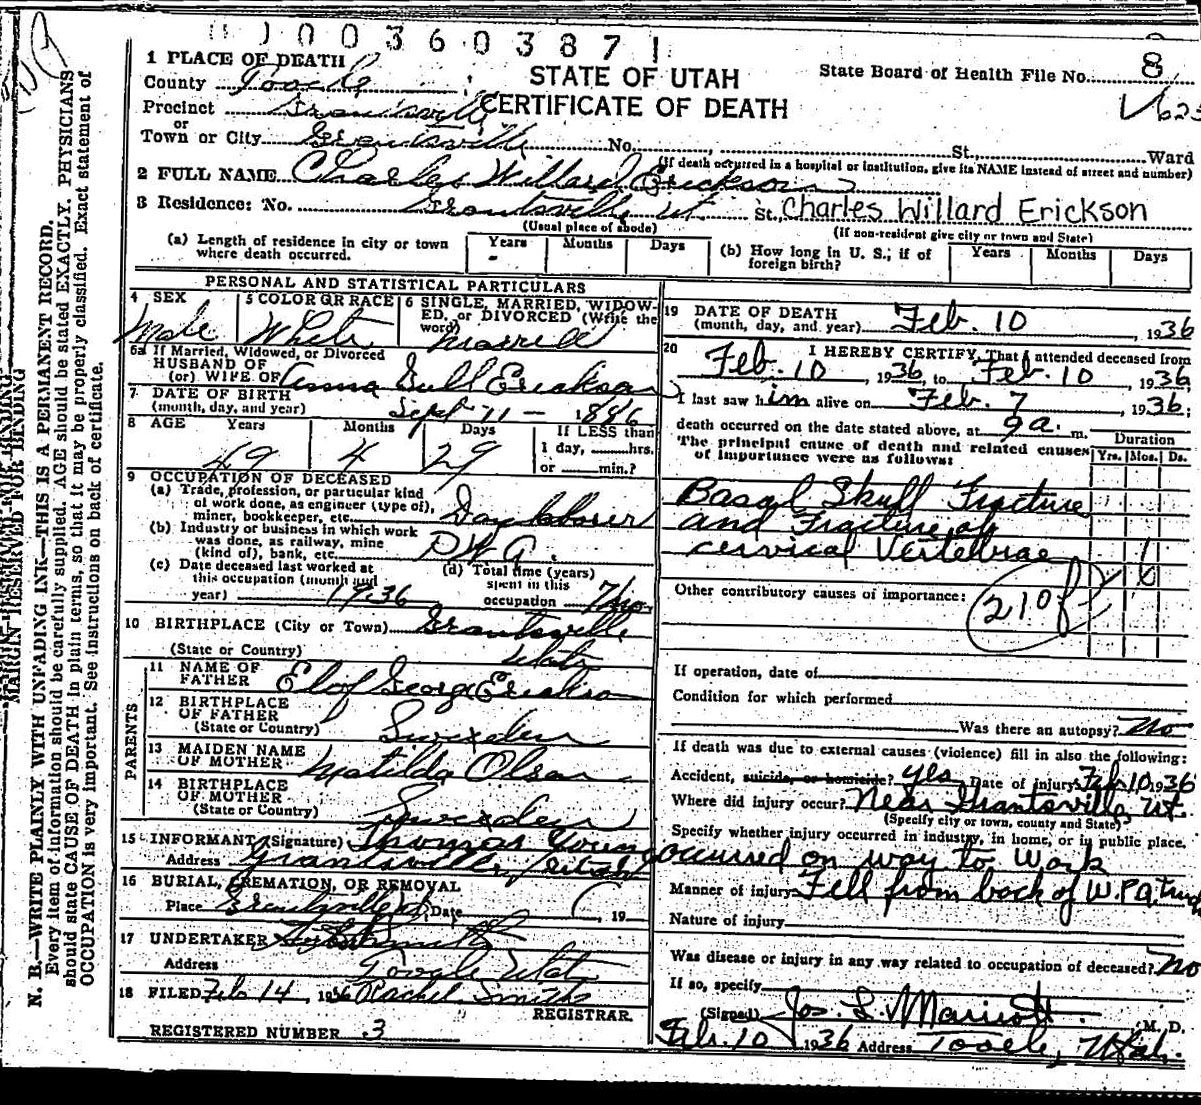 1003603871
1 PLACE OF DEATH
STATE OF UTAH
CERTIFICATE OF DEATH
State Board of Health File No. 8
County Tooele
Precinct Grantsville
or
Town or City Grantsville No. , St., Ward
(If death occurred in a hospital or institution, give its NAME instead of street and number)
2 FULL NAME Charles Willard Erickson
3 Residence: No. Grantsville Ut. St., Charles Willard Erickson
(Usual place of abode) (If non-resident give city or town and State)
(a) Length of residence in city or town where death occurred. Years - Months Days
(b) How long in U. S.; if of foreign birth? Years Months Days
PERSONAL AND STATISTICAL PARTICULARS
4 SEX 5 COLOR OR RACE 6 SINGLE, MARRIED, WIDOW-
ED, or DIVORCED (Write the
word)
Male White Married
6a If Married, Widowed, or Divorced
HUSBAND OF
(or) WIFE OF Anna Gull Erickson
7 DATE OF BIRTH
(month, day, and year) Sept 11 - 1886
8 AGE Years Months Days If LESS than
1 day, hrs.
or min.?
49 4 29
9 OCCUPATION OF DECEASED
(a) Trade, profession, or particular kind
of work done, as engineer (type of),
miner, bookkeeper, etc. Day laborer
(b) Industry or business in which work
was done, as railway, mine
(kind of), bank, etc.
(c) Date deceased last worked at
this occupation (month and
year) 1936
(d) Total time (years)
spent in this
occupation 7 mo.
10 BIRTHPLACE (City or Town) Grantsville
(State or Country) Utah
PARENTS
11 NAME OF
FATHER Elof George Erickson
12 BIRTHPLACE
OF FATHER
(State or Country) Sweden
13 MAIDEN NAME
OF MOTHER Matilda Olson
14 BIRTHPLACE
OF MOTHER
(State or Country) Sweden
15 INFORMANT (Signature) Thomas Young
Address Grantsville, Utah
16 BURIAL, CREMATION, OR REMOVAL
Place Grantsville Ut, Date , 19
17 UNDERTAKER
Address Tooele Utah
18 FILED Feb 14, 1936 Rachel Smith
REGISTRAR.
REGISTERED NUMBER 3
19 DATE OF DEATH
(month, day, and year) Feb. 10 1936
20 I HEREBY CERTIFY, That I attended deceased from
Feb. 10, 1936, to Feb. 10, 1936,
I last saw him alive on Feb. 7, 1936;
death occurred on the date stated above, at 9 a. m.
The principal cause of death and related causes
of importance were as follows:
Duration
Yrs. Mos. Ds.
Basal Skull Fracture
and Fracture of
cervical Vertebrae
Other contributory causes of importance:
210f
If operation, date of
Condition for which performed
Was there an autopsy? No
If death was due to external causes (violence) fill in also the following:
Accident, suicide, or homicide? Yes Date of injury Feb 10 1936
Where did injury occur? Near Grantsville, Ut.
(Specify city or town, county and State)
Specify whether injury occurred in industry, in home, or in public place.
occurred on way to work
Manner of injury Fell from back of W.P.A truck
Nature of injury
Was disease or injury in any way related to occupation of deceased? No
If so, specify
(Signed) Jos. L. Marriott M. D.
Feb. 10 1936 Address Tooele, Utah.
MARGIN RESERVED FOR BINDING
N. B.—WRITE PLAINLY WITH UNFADING INK—THIS IS A PERMANENT RECORD.
Every item of information should be carefully supplied. AGE should be stated EXACTLY. PHYSICIANS
should state CAUSE OF DEATH in plain terms, so that it may be properly classified. Exact statement of
OCCUPATION is very important. See instructions on back of certificate.